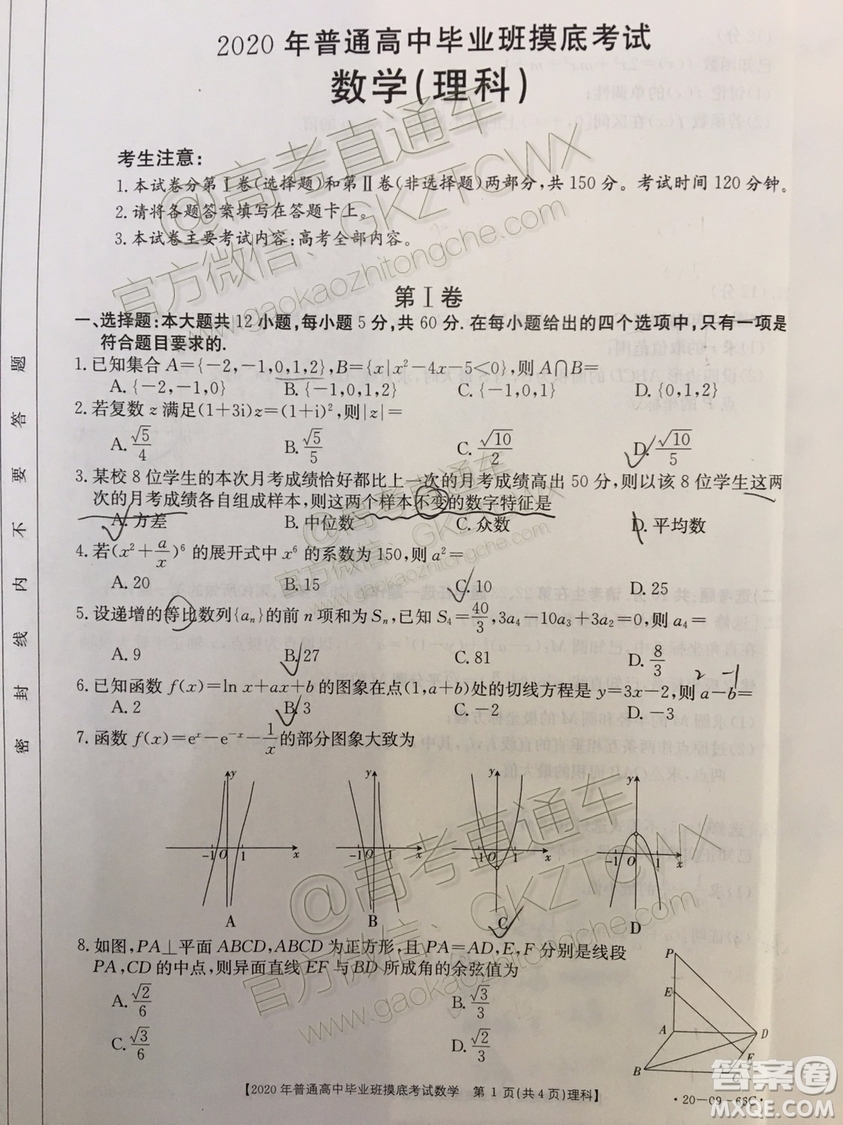 2020 年普通高中毕业班摸底考试
数学(理科)
考生注意:
1. 本试卷分第Ⅰ卷(选择题)和第Ⅱ卷(非选择题)两部分,共 150 分。考试时间 120 分钟。
2. 请将各题答案填写在答题卡上。
3. 本试卷主要考试内容:高考全部内容。
第Ⅰ卷
一、选择题:本大题共 12 小题,每小题 5 分,共 60 分.在每小题给出的四个选项中,只有一项是
符合题目要求的.
1. 已知集合 A={-2,-1,0,1,2},B={x|x²-4x-5<0},则 A∩B=
A. {-2,-1,0} B. {-1,0,1,2} C. {-1,0,1} D. {0,1,2}
2. 若复数 z 满足(1+3i)z=(1+i)²,则|z|=
A. √5/4 B. √5/5 C. √10/2 D. √10/5
3. 某校 8 位学生的本次月考成绩恰好都比上一次的月考成绩高出 50 分,则以该 8 位学生这两
次的月考成绩各自组成样本,则这两个样本不变的数字特征是
A. 方差 B. 中位数 C. 众数 D. 平均数
4. 若(x²+a/x)⁶ 的展开式中 x⁶ 的系数为 150,则 a²=
A. 20 B. 15 C. 10 D. 25
5. 设递增的等比数列{aₙ}的前 n 项和为 Sₙ,已知 S₄=40/3,3a₄-10a₃+3a₂=0,则 a₄=
A. 9 B. 27 C. 81 D. 8/3
2 -1
6. 已知函数 f(x)=ln x+ax+b 的图象在点(1,a+b)处的切线方程是 y=3x-2,则 a-b=
A. 2 B. 3 C. -2 D. -3
7. 函数 f(x)=eˣ-e⁻ˣ-1/x 的部分图象大致为
y y y y
-1 O 1 x -1 O 1 x -1 O 1 x -1 O 1 x
A B C D
8. 如图,PA⊥平面 ABCD,ABCD 为正方形,且 PA=AD,E,F 分别是线段
PA,CD 的中点,则异面直线 EF 与 BD 所成角的余弦值为
A. √2/6 B. √3/3
C. √3/6 D. √2/3
P
E
A D
F
B C
【2020 年普通高中毕业班摸底考试数学 第 1 页(共 4 页)理科】
·20-09-66C·
密 封 线 内 不 要 答 题
@高考直通车
官方微信:GKZTCWX
www.gaokaozhitongche.com
@高考直通车
官方微信:GKZTCWX
www.gaokaozhitongche.com
答案圈
MXQE.COM